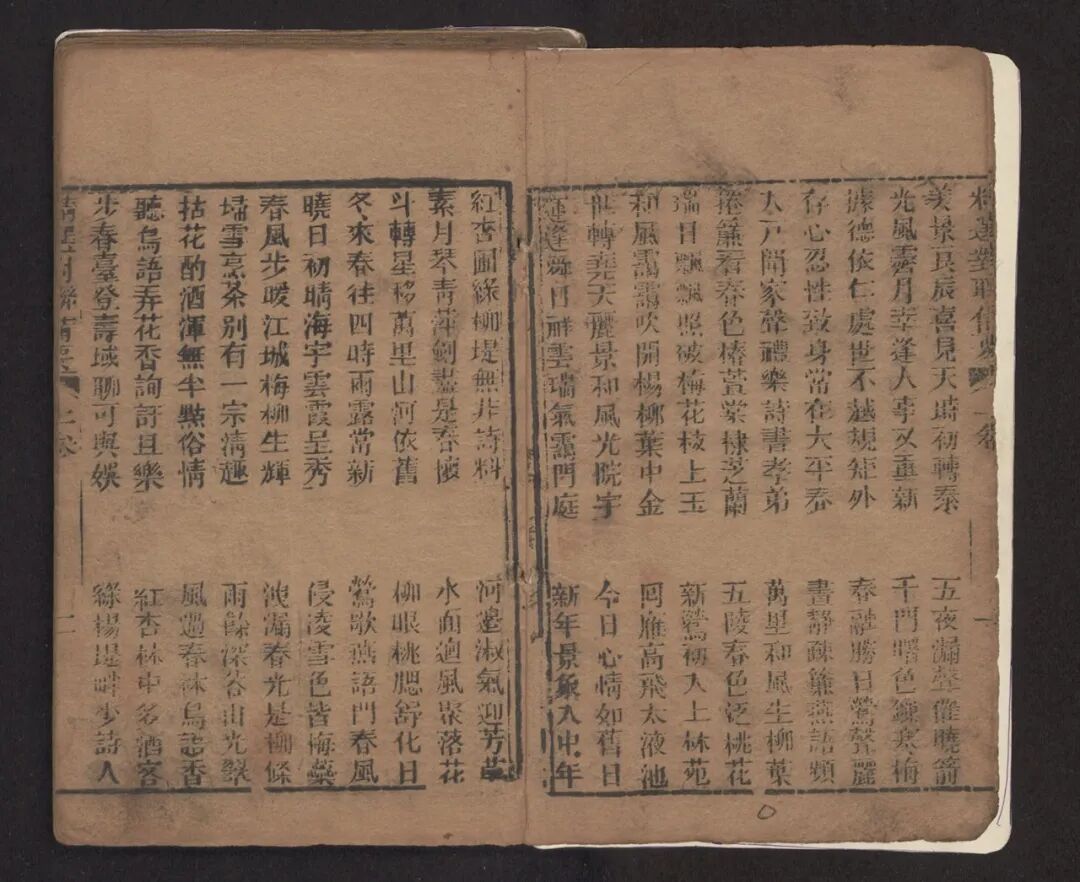 美景良辰喜見天時初轉泰
五夜漏聲催曉箭
光風霽月幸逢人事又重新
千門曙色鎖寒梅
據德依仁處世不越規矩外
春融勝日鶯聲麗
存心忍性致身常在太平春
晝靜疎簾燕語頻
大戶間家聲禮樂詩書孝弟
萬里和風生柳葉
捲簾看春色椿萱棠棣芝蘭
五陵春色泛桃花
瑞日飄飄照破梅花枝上玉
新鶯初入上林苑
和風靄靄吹開楊柳葉中金
囘雁高飛太液池
世轉堯天麗景和風光院宇
今日心情如舊日
運逢舜日祥雲瑞氣靄門庭
新年景象入中年
紅杏園綠柳堤無非詩料
河邊淑氣迎芳草
素月琴青萍劍盡是春懷
水面迴風聚落花
斗轉星移萬里山河依舊
柳眼桃腮舒化日
冬來春往四時雨露常新
鶯歌燕語鬥春風
曉日初晴海宇雲霞呈秀
侵凌雪色皆梅蘂
春風步暖江城梅柳生輝
洩漏春光是柳條
埽雪烹茶別有一宗清趣
雨餘深谷山光翠
拈花酌酒渾無半點俗情
風過春林鳥語香
聽鳥語弄花香詢訝且樂
紅杏林中名酒客
步春臺登壽域聊可與娛
綠楊堤畔步詩人
二